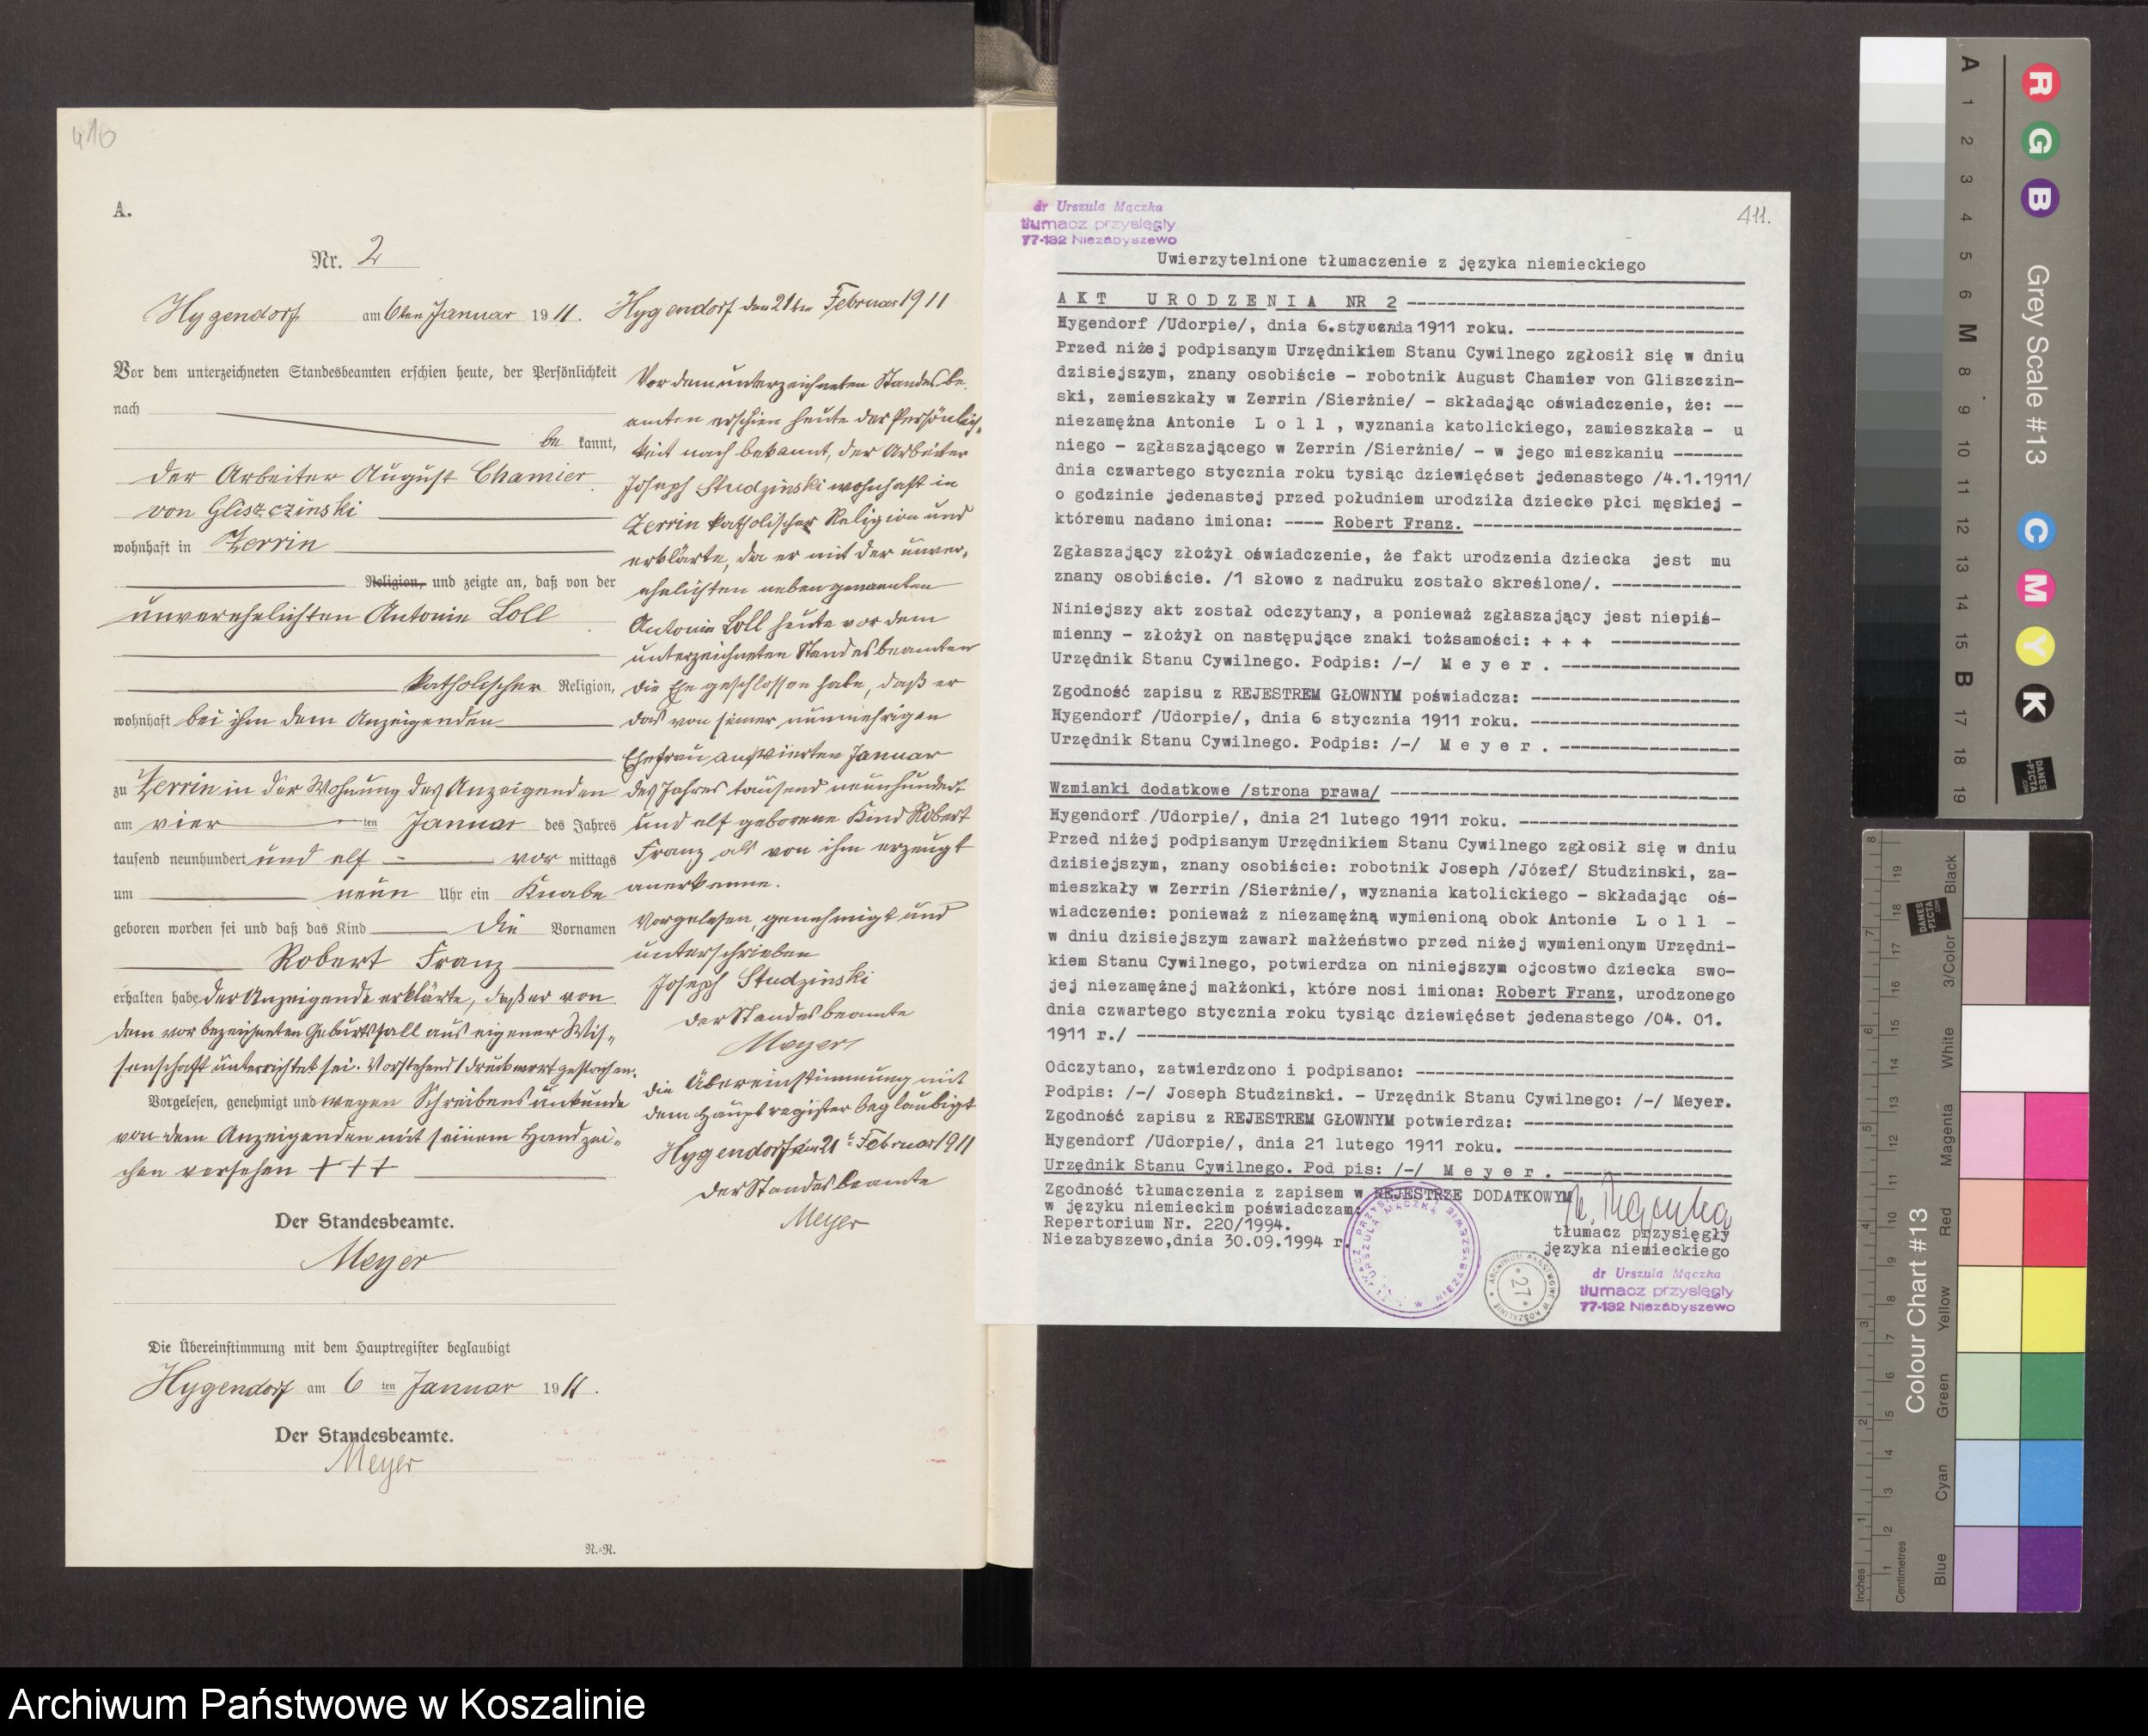 410
A.
Nr. 2
Hygendorf am 6ten Januar 1911.
Vor dem unterzeichneten Standesbeamten erschien heute, der Persönlichkeit
nach
be kannt,
der Arbeiter August Chamier
von Gliszczinski
wohnhaft in Zerrin
Religion, und zeigte an, daß von der
unverehelichten Antonie Loll
katholischer Religion,
wohnhaft bei ihm dem Anzeigenden
zu Zerrin in der Wohnung des Anzeigenden
am vier ten Januar des Jahres
tausend neunhundert und elf vor mittags
um neun Uhr ein Knabe
geboren worden sei und daß das Kind die Vornamen
Robert Franz
erhalten habe. Der Anzeigende erklärte, daß er von
dem vorbezeichneten Geburtsfall aus eigener Wis-
senschaft unterrichtet sei. Vorstehend 1 Druckwort gestrichen.
Vorgelesen, genehmigt und wegen Schreibensunkunde
von dem Anzeigenden mit seinem Handzei-
chen versehen + + +
Der Standesbeamte.
Meyer
Die Übereinstimmung mit dem Hauptregister beglaubigt
Hygendorf am 6 ten Januar 1911.
Der Standesbeamte.
Meyer
N.-R.
Hygendorf den 21ten Februar 1911
Vor dem unterzeichneten Standesbe-
amten erschien heute der Persönlich-
keit nach bekannt, der Arbeiter
Joseph Studzinski wohnhaft in
Zerrin katholischer Religion und
erklärte, da er mit der unver-
ehelichten nebengenannten
Antonie Loll heute vor dem
unterzeichneten Standesbeamten
die Ehe geschlossen habe, daß er
das von seiner nunmehrigen
Ehefrau am vierten Januar
des Jahres tausend neunhundert
und elf geborene Kind Robert
Franz als von ihm erzeugt
anerkenne.
Vorgelesen, genehmigt und
unterschrieben
Joseph Studzinski
Der Standesbeamte
Meyer
Die Übereinstimmung mit
dem Hauptregister beglaubigt
Hygendorf den 21t Februar 1911
Der Standesbeamte
Meyer
dr Urszula Mączka
tłumacz przysięgły
77-132 Niezabyszewo
411.
Uwierzytelnione tłumaczenie z języka niemieckiego
AKT URODZENIA NR 2
Hygendorf /Udorpie/, dnia 6.stycznia 1911 roku.
Przed niżej podpisanym Urzędnikiem Stanu Cywilnego zgłosił się w dniu
dzisiejszym, znany osobiście - robotnik August Chamier von Gliszczin-
ski, zamieszkały w Zerrin /Sierżnie/ - składając oświadczenie, że: --
niezamężna Antonie L o l l , wyznania katolickiego, zamieszkała - u
niego - zgłaszającego w Zerrin /Sierżnie/ - w jego mieszkaniu -------
dnia czwartego stycznia roku tysiąc dziewięćset jedenastego /4.1.1911/
o godzinie jedenastej przed południem urodziła dziecko płci męskiej -
któremu nadano imiona: ---- Robert Franz.
Zgłaszający złożył oświadczenie, że fakt urodzenia dziecka jest mu
znany osobiście. /1 słowo z nadruku zostało skreślone/.
Niniejszy akt został odczytany, a ponieważ zgłaszający jest niepiś-
mienny - złożył on następujące znaki tożsamości: + + +
Urzędnik Stanu Cywilnego. Podpis: /-/ M e y e r .
Zgodność zapisu z REJESTREM GŁOWNYM poświadcza:
Hygendorf /Udorpie/, dnia 6 stycznia 1911 roku.
Urzędnik Stanu Cywilnego. Podpis: /-/ M e y e r .
Wzmianki dodatkowe /strona prawa/
Hygendorf /Udorpie/, dnia 21 lutego 1911 roku.
Przed niżej podpisanym Urzędnikiem Stanu Cywilnego zgłosił się w dniu
dzisiejszym, znany osobiście: robotnik Joseph /Józef/ Studzinski, za-
mieszkały w Zerrin /Sierżnie/, wyznania katolickiego - składając oś-
wiadczenie: ponieważ z niezamężną wymienioną obok Antonie L o l l -
w dniu dzisiejszym zawarł małżeństwo przed niżej wymienionym Urzędni-
kiem Stanu Cywilnego, potwierdza on niniejszym ojcostwo dziecka swo-
jej niezamężnej małżonki, które nosi imiona: Robert Franz, urodzonego
dnia czwartego stycznia roku tysiąc dziewięćset jedenastego /04. 01.
1911 r./
Odczytano, zatwierdzono i podpisano:
Podpis: /-/ Joseph Studzinski. - Urzędnik Stanu Cywilnego: /-/ Meyer.
Zgodność zapisu z REJESTREM GŁOWNYM potwierdza:
Hygendorf /Udorpie/, dnia 21 lutego 1911 roku.
Urzędnik Stanu Cywilnego. Pod pis: /-/ M e y e r .
Zgodność tłumaczenia z zapisem w REJESTRZE DODATKOWYM
w języku niemieckim poświadczam:
Repertorium Nr. 220/1994.
Niezabyszewo,dnia 30.09.1994 r.
tłumacz przysięgły
języka niemieckiego
dr Urszula Mączka
tłumacz przysięgły
77-132 Niezabyszewo
ARCHIWUM PAŃSTWOWE W KOSZALINIE
* 27 *
R G B Grey Scale #13 C M Y K
DANES PICTA .COM
A 1 2 3 4 5 6 M 8 9 10 11 12 13 14 15 B 17 18 19
Colour Chart #13
Blue Cyan Green Yellow Red Magenta White 3/Color Black
Inches 1 2 3 4 5 6 7 8
Centimetres 1 2 3 4 5 6 7 8 9 10 11 12 13 14 15 16 17 18 19
DANES PICTA .COM
Archiwum Państwowe w Koszalinie